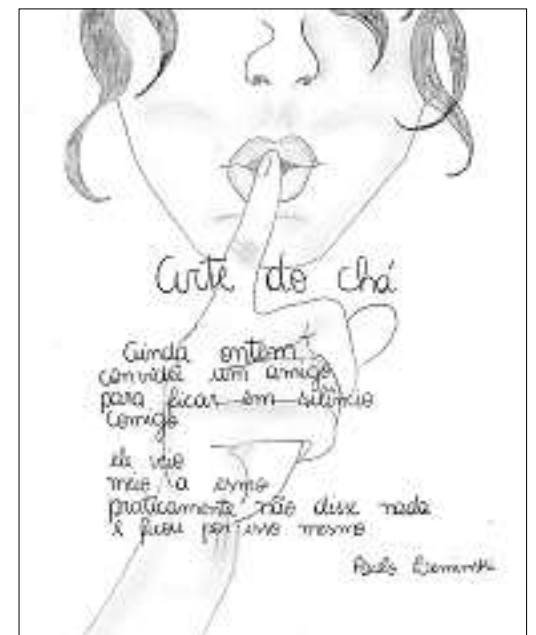 Arte do chá
ainda ontem
convidei um amigo
para ficar em silêncio
comigo
ele veio
meio a esmo
praticamente não disse nada
e ficou por isso mesmo
Paulo Leminski